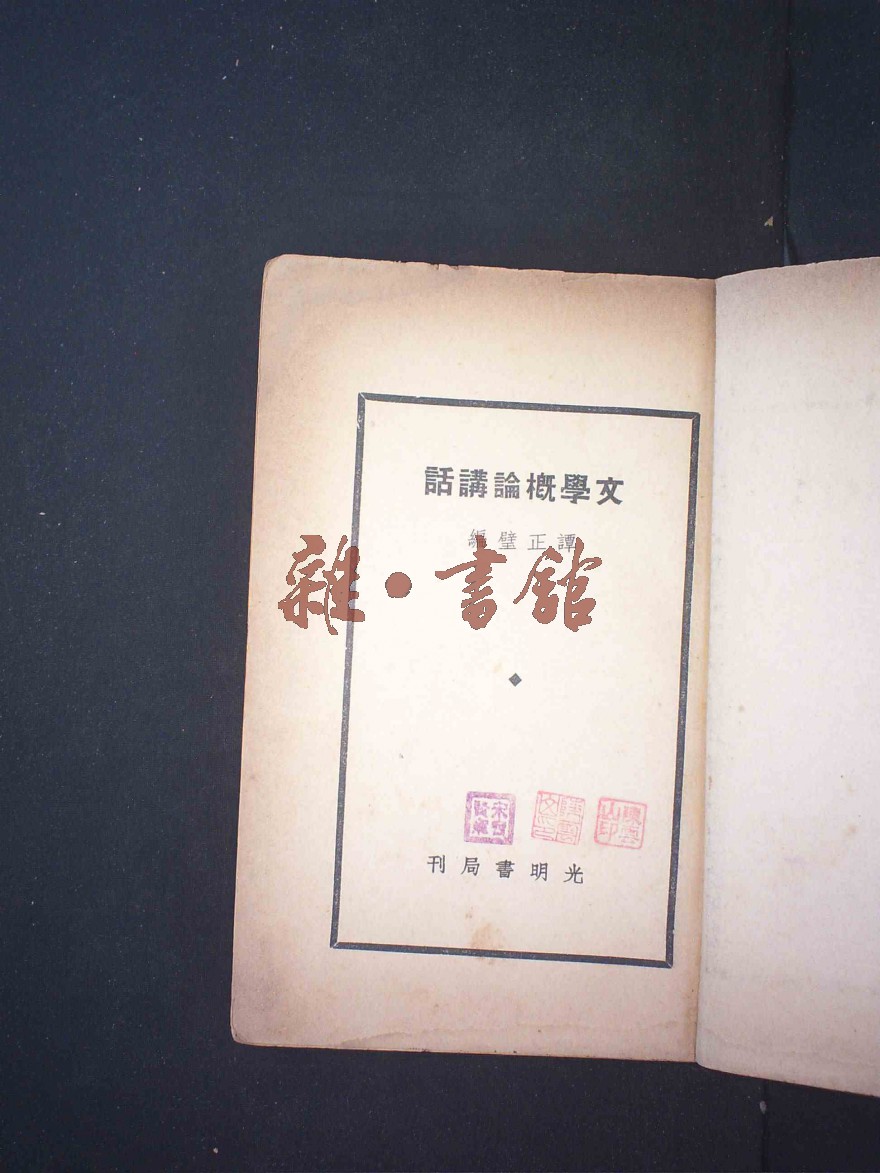 文學概論講話
譚正璧編
雜·書館
光明書局刊